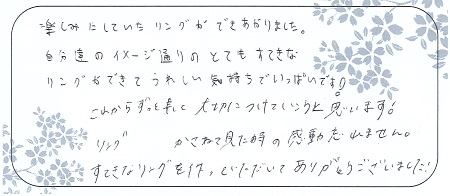 楽しみにしていたリングができあがりました。
自分達のイメージ通りのとてもすてきな
リングができてうれしい気持ちでいっぱいです!
これからずっと大切につけていこうと思います!
リング かさねて見た時の感動忘れません。
すてきなリングを作っていただいてありがとうございました!